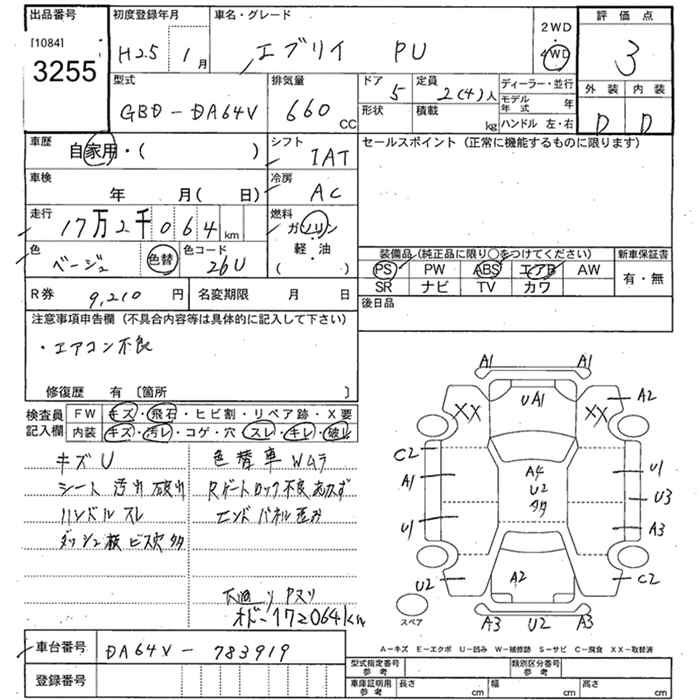 出品番号 初度登録年月 車名・グレード 2WD 評価点
[1084] 3255 H25年 1月 エブリイ PU 4WD 3
型式 排気量 ドア 5 定員 2(4)人 ディーラー・並行 外装 内装
GBD-DA64V 660 CC 形状 積載 kg モデル年式 年 D D
ハンドル 左・右
車歴 自家用・( ) シフト IAT セールスポイント (正常に機能するものに限ります)
車検 年 月(日) 冷房 AC
走行 17万2千064km 燃料 ガソリン・軽油 ( )
色 ベージュ 色替 色コード 26U
装備品(純正品に限り○をつけてください) 新車保証書
PS PW ABS エアB AW 有・無
SR ナビ TV カワ
R券 9,210円 名変期限 月 日 後日品
注意事項申告欄 (不具合内容等は具体的に記入して下さい)
・エアコン不良
修復歴 有 〔箇所 〕
検査員記入欄 FW キズ・飛石・ヒビ割・リペア跡・X要
内装 キズ・汚レ・コゲ・穴 スレ・キレ・破レ
キズU 色替車 Wムラ
シート 汚れ 破れ Rゲートロック不良 あかず
ハンドルスレ エンドパネル歪み
ダッシュ板 ビス穴多
下廻り Pヌリ
オドー172064km
A1 A1
UA1
XX XX A2
C2
A1 A4 U1
U2 U3
多々
U1 A3
U2 A2 C2
スペア A3 U2 A3
A-キズ E-エクボ U-凹み W-補修跡 S-サビ C-腐食 XX-取替済
車台番号 DA64V-783919
登録番号
型式指定番号 参考 類別区分番号 参考
車庫証明用 参考 長さ cm 幅 cm 高さ cm